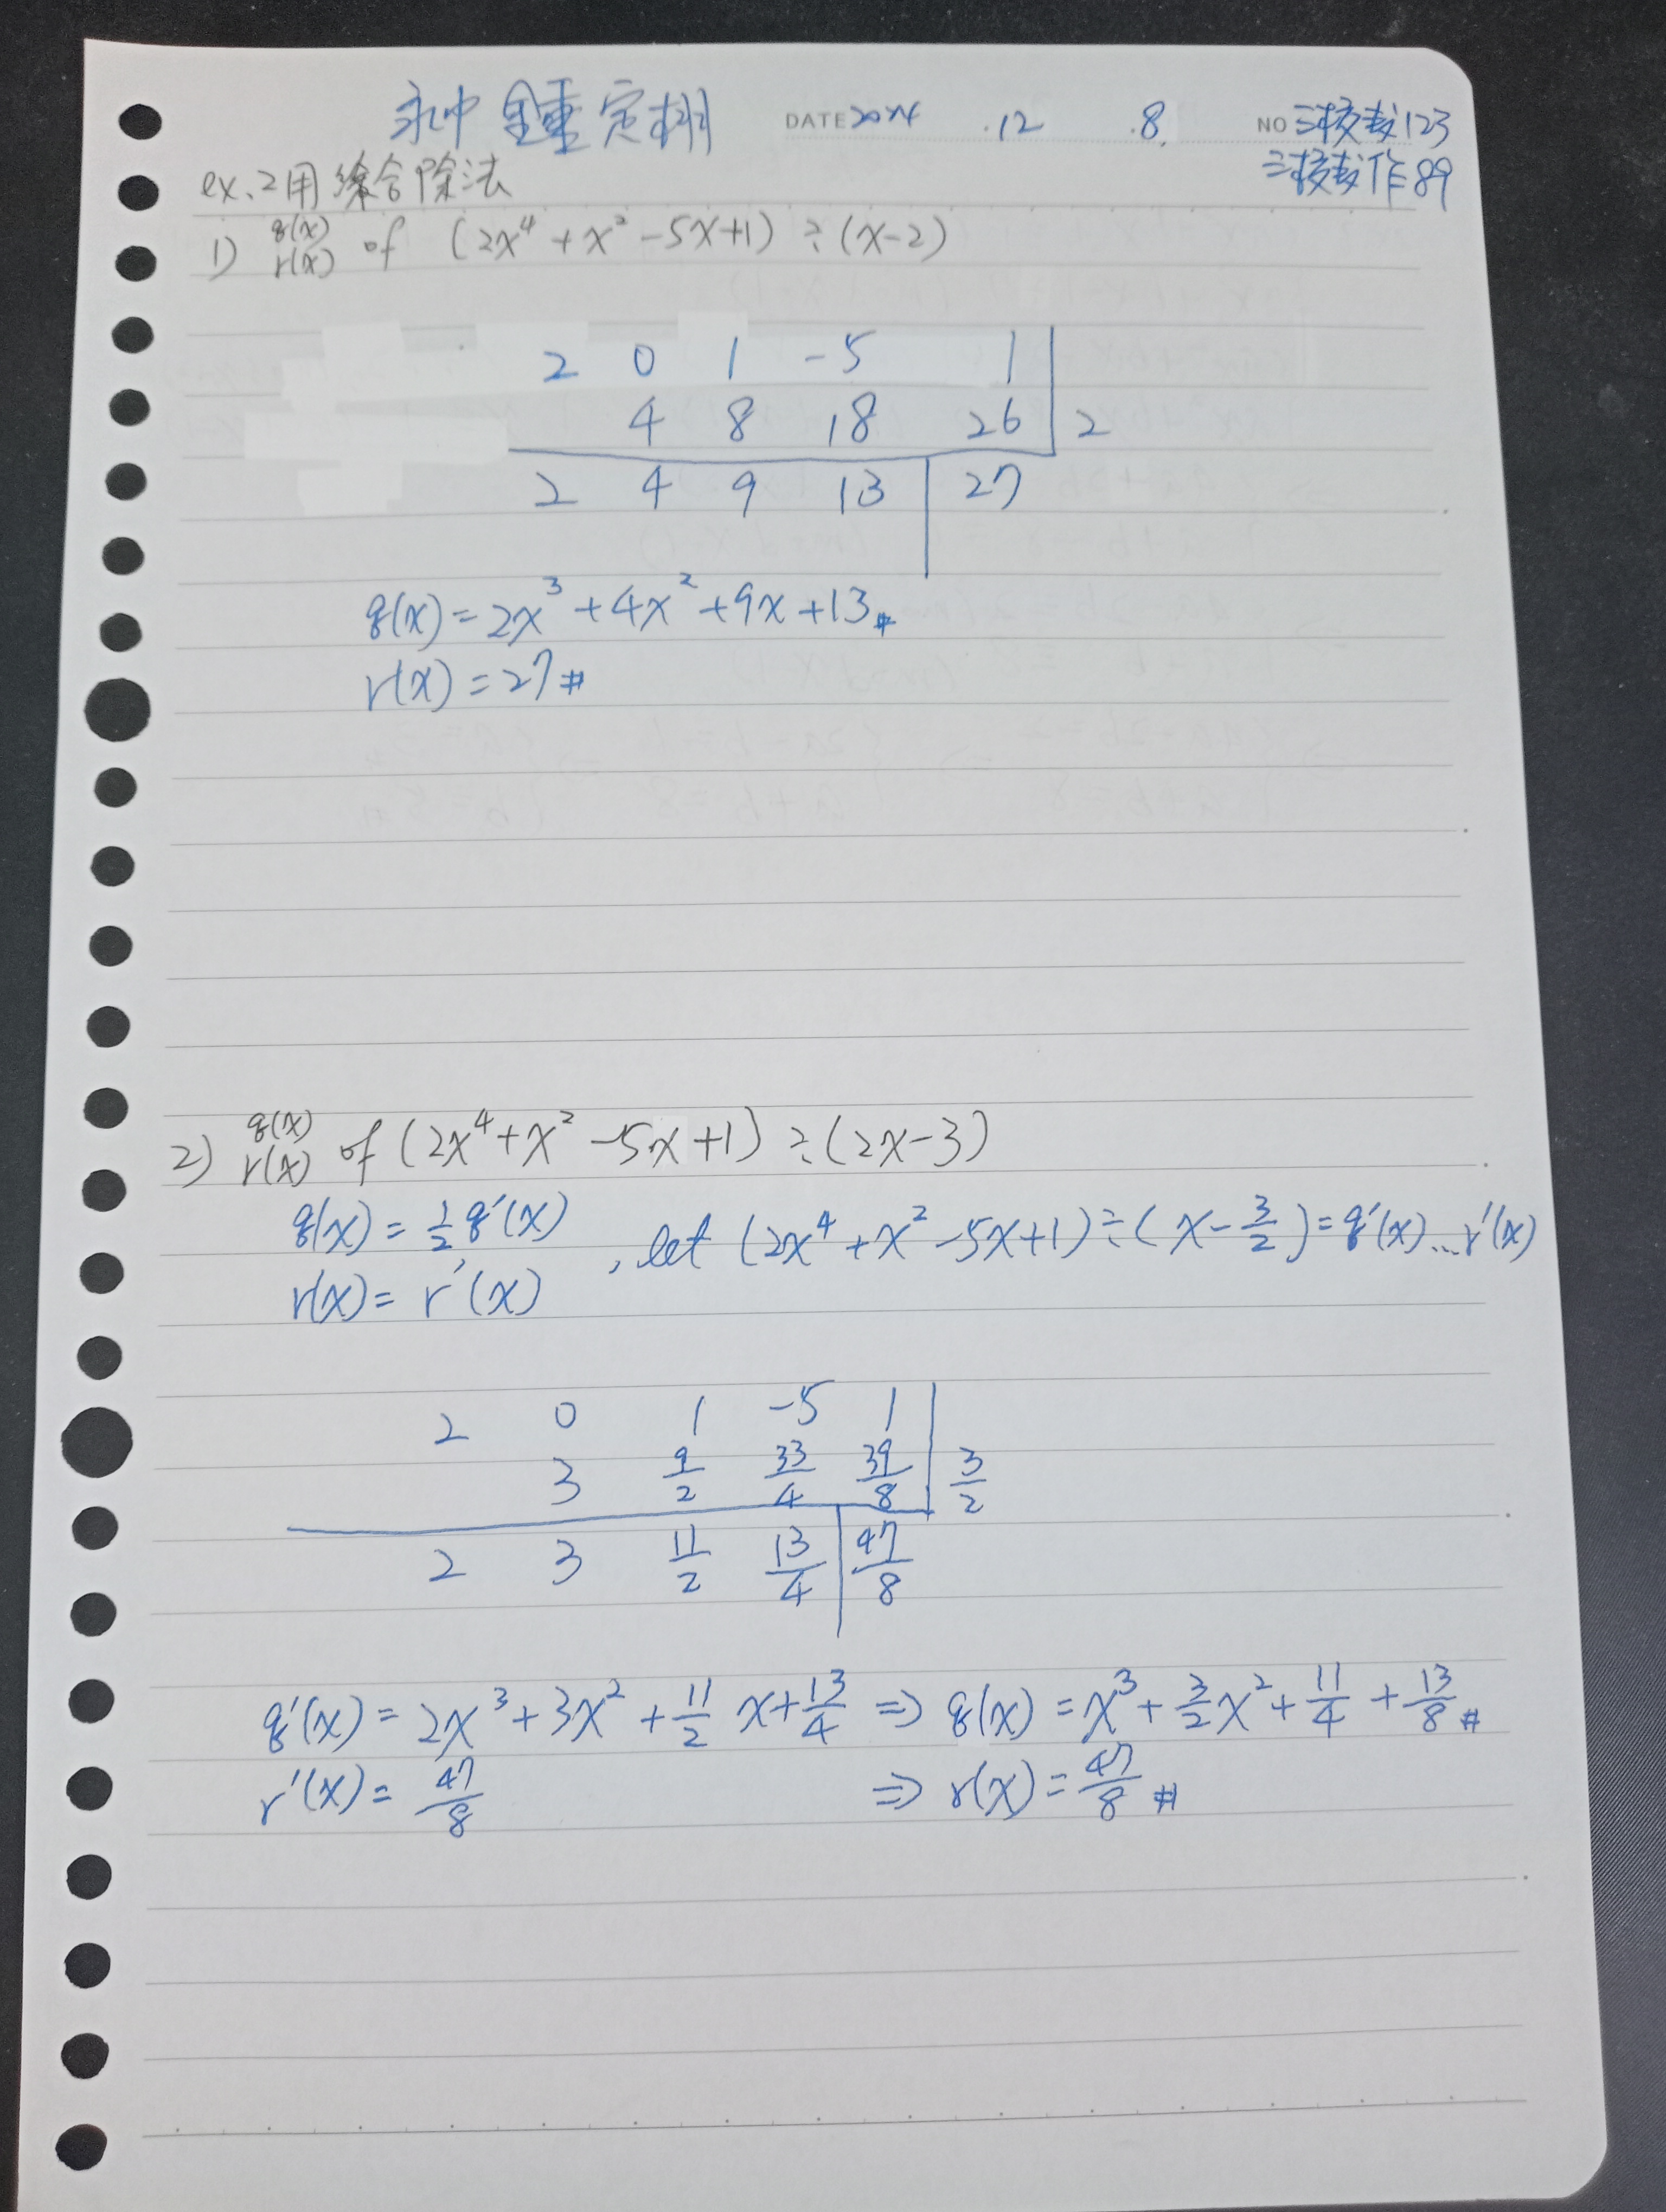 永中 鍾定栩 DATE 2024 .12 8. NO 三技考123
三技考作89
ex.2用綜合除法
1) q(x) r(x) of (2x⁴+x²-5x+1)÷(x-2)
2 0 1 -5 1
4 8 18 26 2
2 4 9 13 27
q(x)=2x³+4x²+9x+13#
r(x)=27#
2) q(x) r(x) of (2x⁴+x²-5x+1)÷(2x-3)
q(x)=1/2 q'(x) , let (2x⁴+x²-5x+1)÷(x-3/2)=q'(x)...r'(x)
r(x)=r'(x)
2 0 1 -5 1
3 9/2 33/4 39/8 3/2
2 3 11/2 13/4 47/8
q'(x)=2x³+3x²+11/2 x+13/4 ⇒ q(x)=x³+3/2x²+11/4+13/8#
r'(x)=47/8 ⇒ r(x)=47/8#